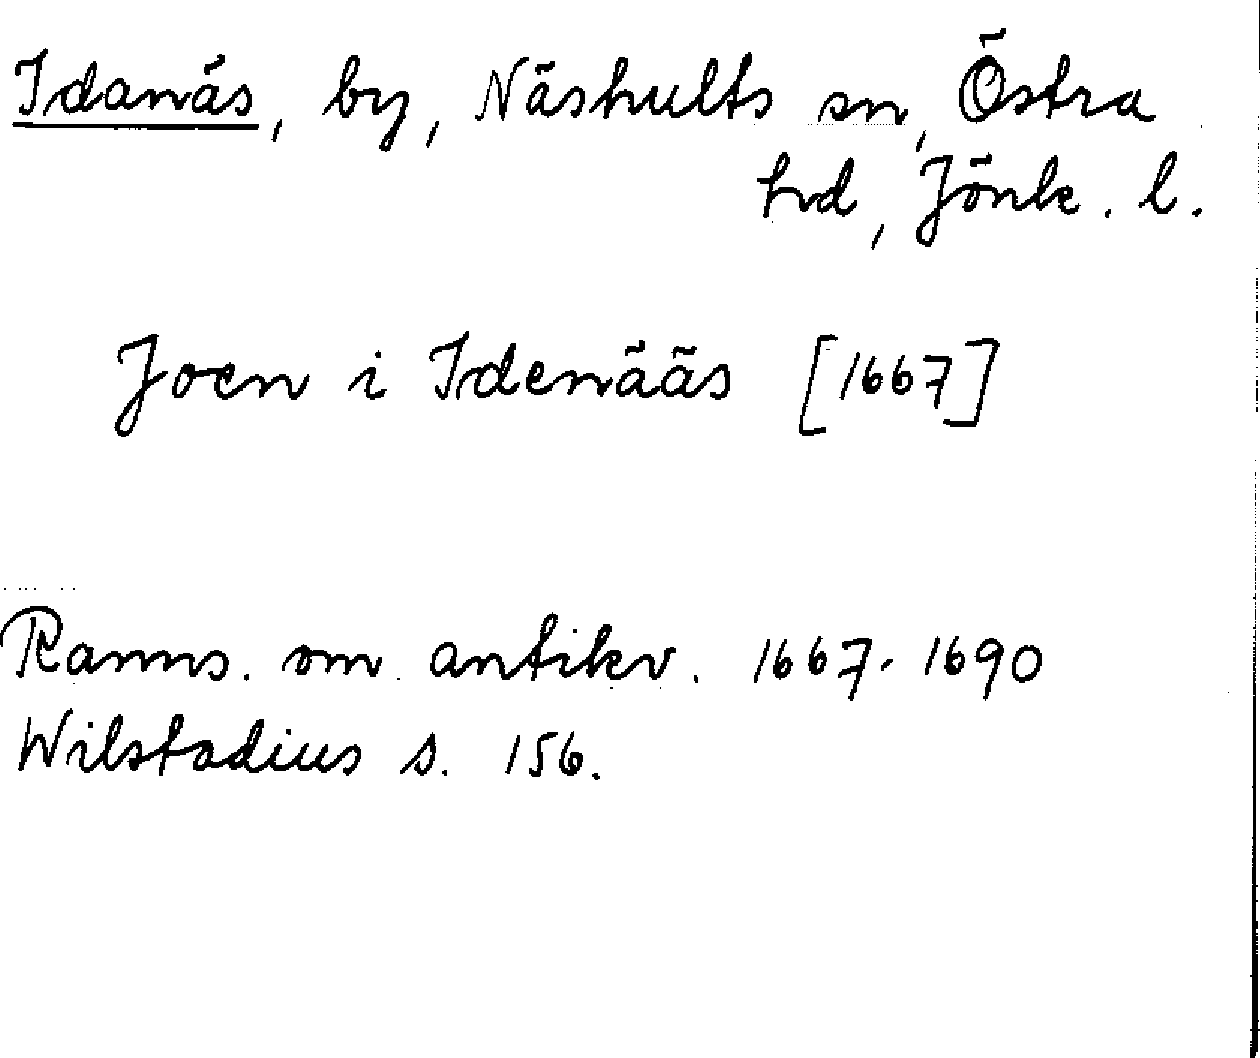 Idanäs, by, Näshults sn, Östra
hd, Jönk. l.
Joen i Idenääs [1667]
Ranns. om antikv. 1667-1690
Wilstadius s. 156.